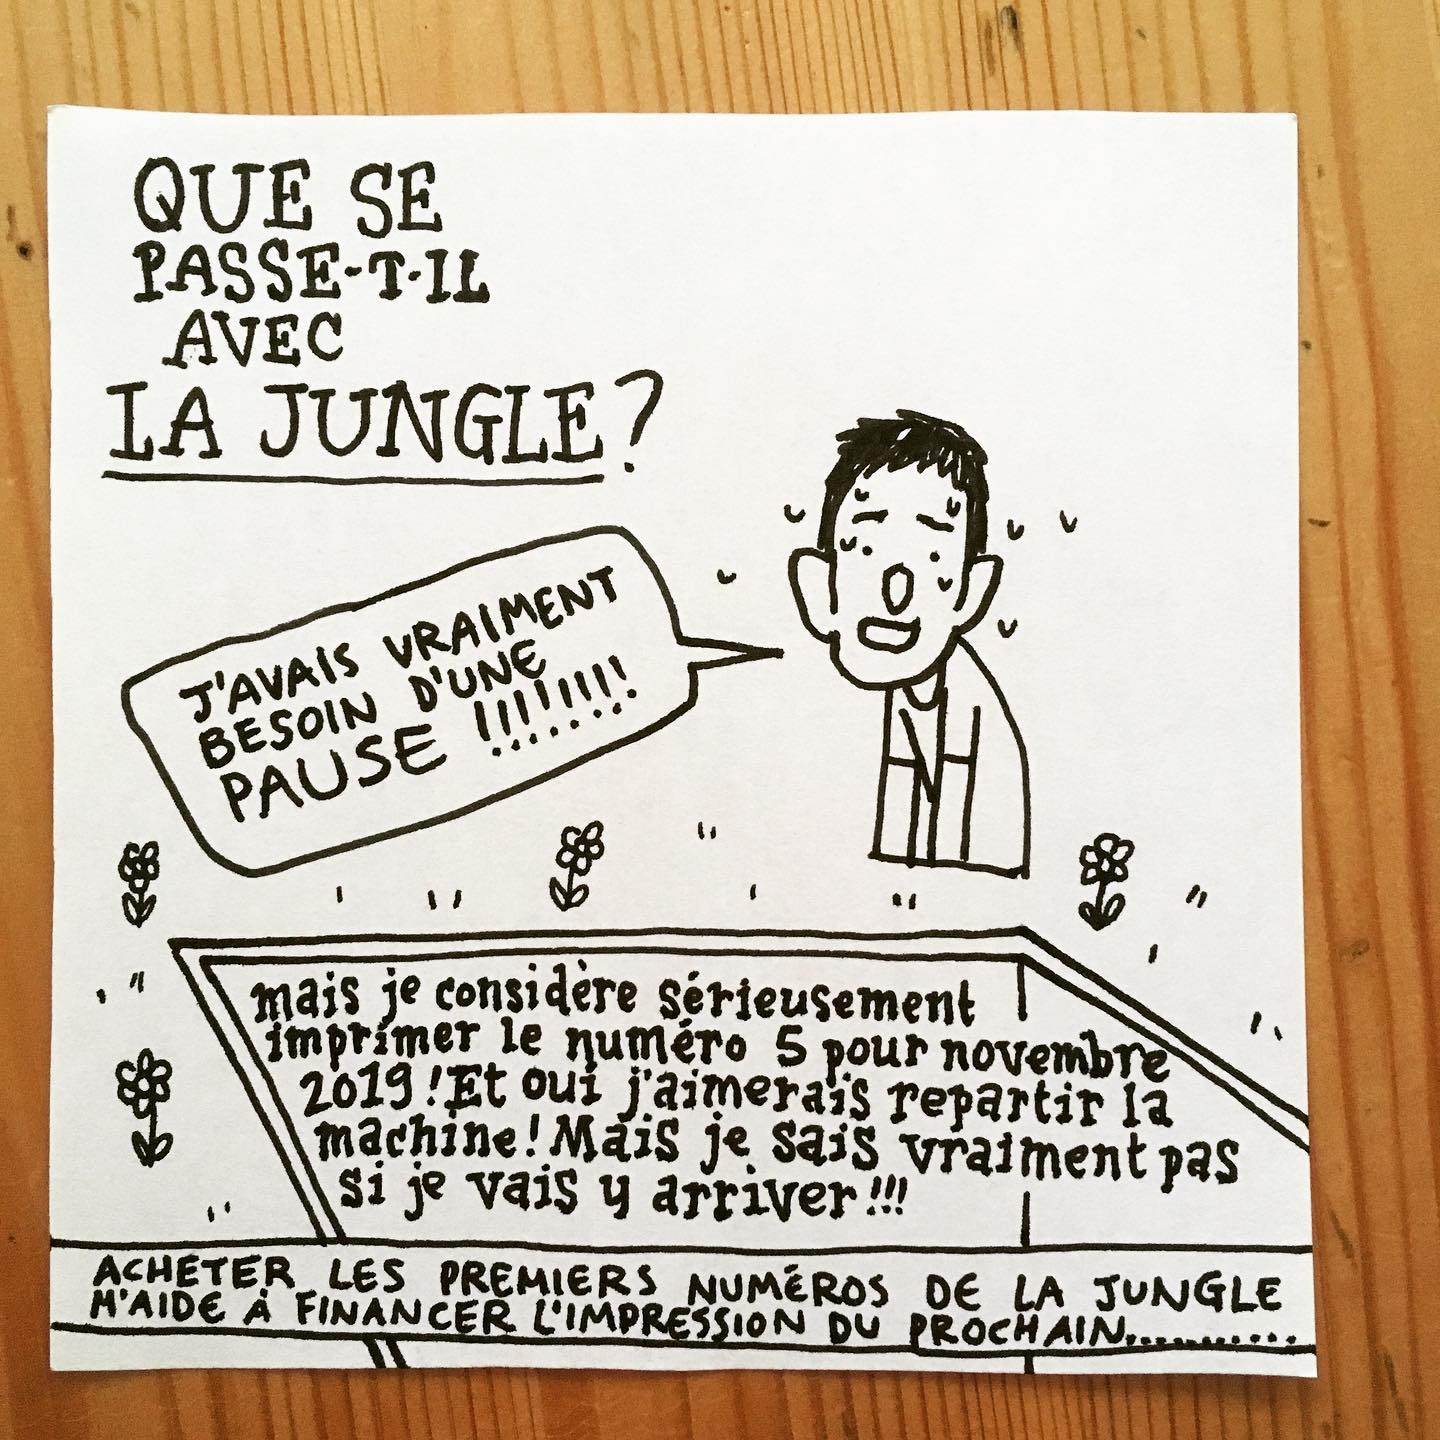 QUE SE
PASSE-T-IL
AVEC
LA JUNGLE?
J'AVAIS VRAIMENT
BESOIN D'UNE
PAUSE !!!!!!!!
mais je considère sérieusement
imprimer le numéro 5 pour novembre
2019! Et oui j'aimerais repartir la
machine! Mais je sais vraiment pas
si je vais y arriver!!!
ACHETER LES PREMIERS NUMÉROS DE LA JUNGLE
M'AIDE À FINANCER L'IMPRESSION DU PROCHAIN...........